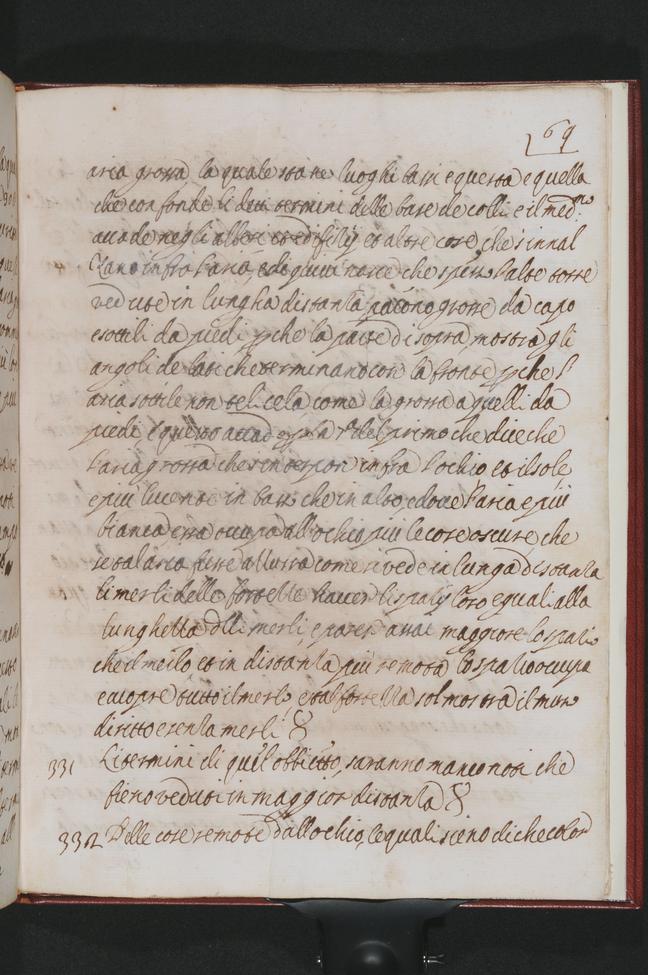 69
aria grossa la quale sta ne luoghi bassi e questa e quella
che confonde li detti termini delle base de colli e il med.mo
accade negli alberi et edifitij et altre cose, che s'innal
zano infra l'aria, e di quivi nasce che spesso l'alte torre
vedute in lungha distanza paiono grosse da capo
e sottili da piedi p che la parte di sopra mostra gli
angoli de lati che terminano con la fronte p che l'
aria sottile non te li cela como la grossa a quelli da
piedi e questo accad p la del primo che dice che
l'aria grossa che s'interpon infra l'ochio et il sole
e piu lucente in basso che in alto, e dove l'aria e piu
bianca essa occupa all'ochio piu le cose oscure, che
se tal aria fusse allura come si vede in lunga distanza
li merli delle fortezze haver li spatij loro eguali alla
lunghezza dlli merli, e parer assai maggiore lo spatio
che il merlo et in distanza piu remota lo spatio occupa
e cuopre tutto il merlo e tal fortezza sol mostra il muro
diritto e senza merli
331 Li termini di quel'obbietto, saranno manco noti che
sieno veduti in maggior distanza
332 Delle cose remote dall'ochio, le quali sieno di che color